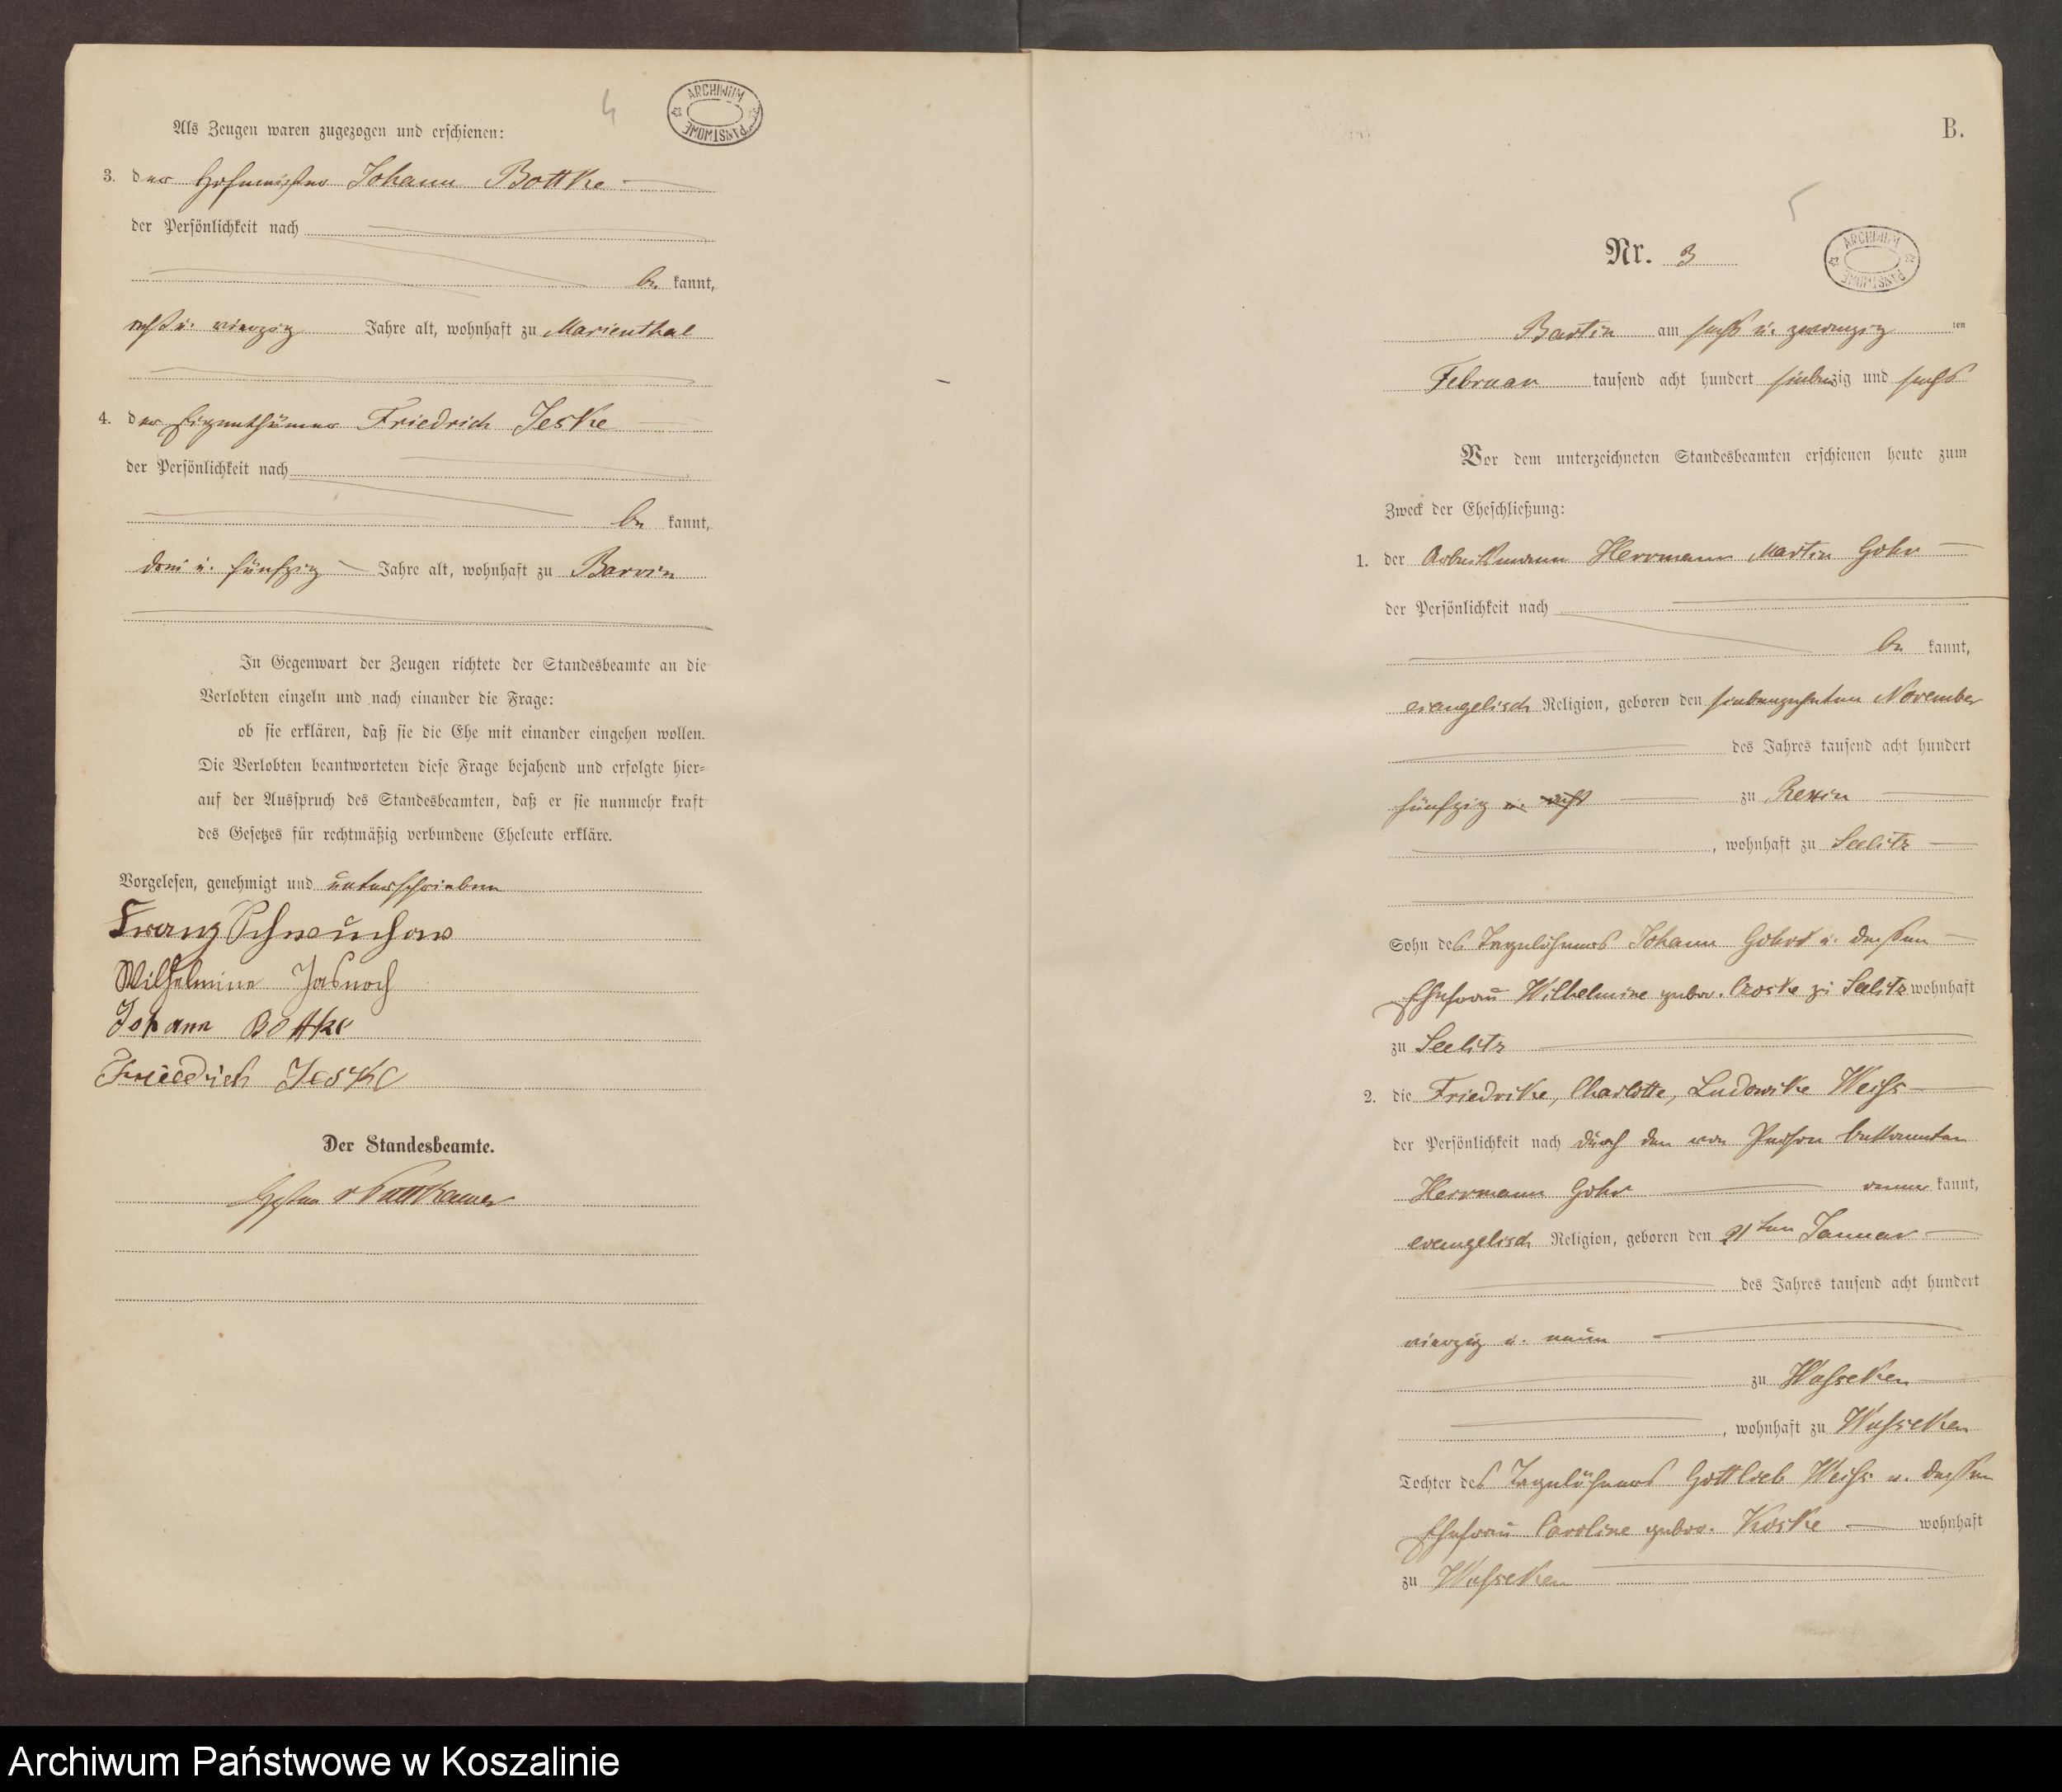 4
ARCHIWUM PAŃSTWOWE
Als Zeugen waren zugezogen und erschienen:
3. der Hofmeister Johann Bottke
der Persönlichkeit nach
be kannt,
acht u. vierzig Jahre alt, wohnhaft zu Marienthal
4. der Eigenthümer Friedrich Jeske
der Persönlichkeit nach
be kannt,
drei u. fünfzig Jahre alt, wohnhaft zu Barvin
In Gegenwart der Zeugen richtete der Standesbeamte an die
Verlobten einzeln und nach einander die Frage:
ob sie erklären, daß sie die Ehe mit einander eingehen wollen.
Die Verlobten beantworteten diese Frage bejahend und erfolgte hier=
auf der Ausspruch des Standesbeamten, daß er sie nunmehr kraft
des Gesetzes für rechtmäßig verbundene Eheleute erkläre.
Vorgelesen, genehmigt und unterschrieben
Franz Schwuchow
Wilhelmine
Johann Bottke
Friedrich Jeske
Der Standesbeamte.
v Puttkamer
B.
5
ARCHIWUM PAŃSTWOWE
Nr. 3
Bartin am sechs u. zwanzig ten
Februar tausend acht hundert siebenzig und sechs
Vor dem unterzeichneten Standesbeamten erschienen heute zum
Zweck der Eheschließung:
1. der Arbeitsmann Herrmann Martin Gohr
der Persönlichkeit nach
be kannt,
evangelisch Religion, geboren den siebenzehnten November
des Jahres tausend acht hundert
fünfzig zu Rexin
, wohnhaft zu Seelitz
Sohn des Tagelöhners Johann Gohr u. dessen
Ehefrau Wilhelmine gebor. zu Seelitz wohnhaft
zu Seelitz
2. die Friedrike, Charlotte, Ludowike Weiss
der Persönlichkeit nach durch den von Person bekannten
Herrmann Gohr aner kannt,
evangelisch Religion, geboren den 21ten Januar
des Jahres tausend acht hundert
vierzig u. neun
zu Wusseken
, wohnhaft zu Wusseken
Tochter des Tagelöhners Gottlieb Weiss u. dessen
Ehefrau Caroline gebor. Koske wohnhaft
zu Wusseken
Archiwum Państwowe w Koszalinie